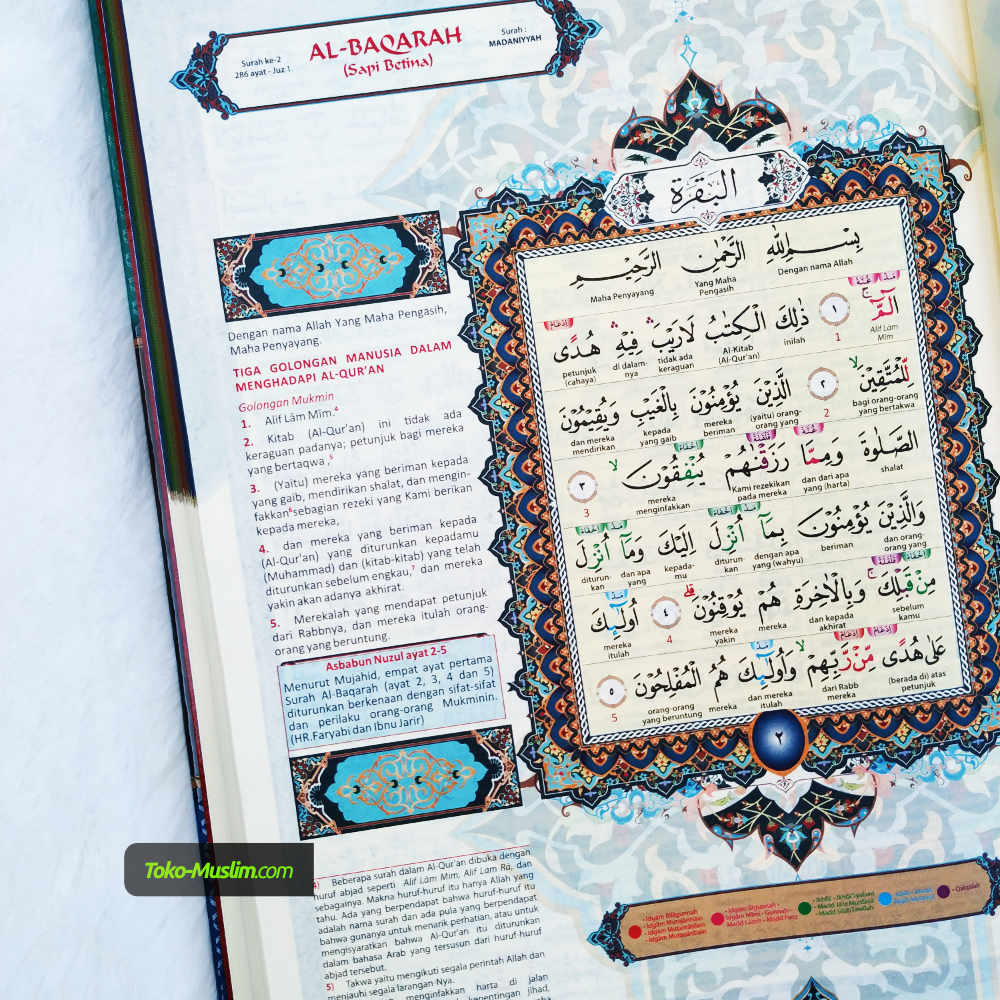 Surah ke-2
286 ayat - Juz 1
AL-BAQARAH
(Sapi Betina)
Surah :
MADANIYYAH
Dengan nama Allah Yang Maha Pengasih,
Maha Penyayang.
TIGA GOLONGAN MANUSIA DALAM
MENGHADAPI AL-QUR'AN
Golongan Mukmin
1. Alif Lâm Mîm.4
2. Kitab (Al-Qur'an) ini tidak ada
keraguan padanya; petunjuk bagi mereka
yang bertaqwa,5
3. (Yaitu) mereka yang beriman kepada
yang gaib, mendirikan shalat, dan mengin-
fakkan6 sebagian rezeki yang Kami berikan
kepada mereka,
4. dan mereka yang beriman kepada
(Al-Qur'an) yang diturunkan kepadamu
(Muhammad) dan (kitab-kitab) yang telah
diturunkan sebelum engkau,7 dan mereka
yakin akan adanya akhirat.
5. Merekalah yang mendapat petunjuk
dari Rabbnya, dan mereka itulah orang-
orang yang beruntung.
Asbabun Nuzul ayat 2-5
Menurut Mujahid, empat ayat pertama
Surah Al-Baqarah (ayat 2, 3, 4 dan 5)
diturunkan berkenaan dengan sifat-sifat
dan perilaku orang-orang Mukminin.
(HR.Faryabi dan Ibnu Jarir)
4) Beberapa surah dalam Al-Qur'an dibuka dengan
huruf abjad seperti Alif Lâm Mîm, Alif Lâm Râ, dan
sebagainya. Makna huruf-huruf itu hanya Allah yang
tahu. Ada yang berpendapat bahwa huruf-huruf itu
adalah nama surah dan ada pula yang berpendapat
bahwa gunanya untuk menarik perhatian, atau untuk
mengisyaratkan bahwa Al-Qur'an itu diturunkan
dalam bahasa Arab yang tersusun dari huruf-huruf
abjad tersebut.
5) Takwa yaitu mengikuti segala perintah Allah dan
menjauhi segala larangan Nya.
menginfakkan harta di jalan
kepentingan jihad,
البقرة
بِسْمِ اللّٰهِ الرَّحْمٰنِ الرَّحِيْمِ
Dengan nama Allah Yang Maha Pengasih Maha Penyayang
الۤمّۤ ۚ ١ ذٰلِكَ الْكِتٰبُ لَا رَيْبَ ۛ فِيْهِ ۛ هُدًى
Alif Lâm Mîm 1 inilah Al-Kitab (Al-Qur'an) tidak ada keraguan di dalam-nya petunjuk (cahaya)
لِّلْمُتَّقِيْنَ ۙ ٢ الَّذِيْنَ يُؤْمِنُوْنَ بِالْغَيْبِ وَيُقِيْمُوْنَ
bagi orang-orang yang bertakwa 2 (yaitu) orang-orang yang mereka beriman kepada yang gaib dan mereka mendirikan
الصَّلٰوةَ وَمِمَّا رَزَقْنٰهُمْ يُنْفِقُوْنَ ۙ ٣
shalat dan dari apa yang (harta) Kami rezekikan pada mereka mereka menginfakkan 3
وَالَّذِيْنَ يُؤْمِنُوْنَ بِمَآ اُنْزِلَ اِلَيْكَ وَمَآ اُنْزِلَ
dan orang-orang yang beriman dengan apa yang (wahyu) diturun kan kepada-mu dan apa yang diturun-kan
مِنْ قَبْلِكَ ۚ وَبِالْاٰخِرَةِ هُمْ يُوْقِنُوْنَ ۗ ٤ اُولٰۤىِٕكَ
sebelum kamu dan kepada akhirat mereka mereka yakin 4 mereka itulah
عَلٰى هُدًى مِّنْ رَّبِّهِمْ ۙ وَاُولٰۤىِٕكَ هُمُ الْمُفْلِحُوْنَ ٥
(berada di) atas petunjuk dari Rabb mereka dan mereka itulah mereka orang-orang yang beruntung 5
٢
Toko-Muslim.com